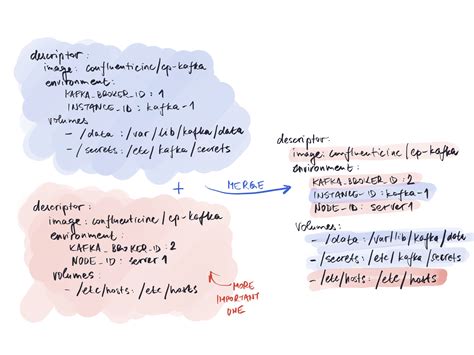 descriptor:
image: confluentinc/cp-kafka
environment:
KAFKA_BROKER_ID: 1
INSTANCE_ID: kafka-1
volumes
- /data:/var/lib/kafka/data
- /secrets:/etc/kafka/secrets
+
MERGE
descriptor:
image: confluentinc/cp-kafka
environment:
KAFKA_BROKER_ID: 2
NODE_ID: server1
volumes:
- /etc/hosts: /etc/hosts
MORE
IMPORTANT
ONE
descriptor:
image: confluentinc/cp-kafka
environment:
KAFKA_BROKER_ID: 2
INSTANCE_ID: kafka-1
NODE_ID: server1
volumes:
- /data:/var/lib/kafka/data
- /secrets:/etc/kafka/secrets
- /etc/hosts: /etc/hosts